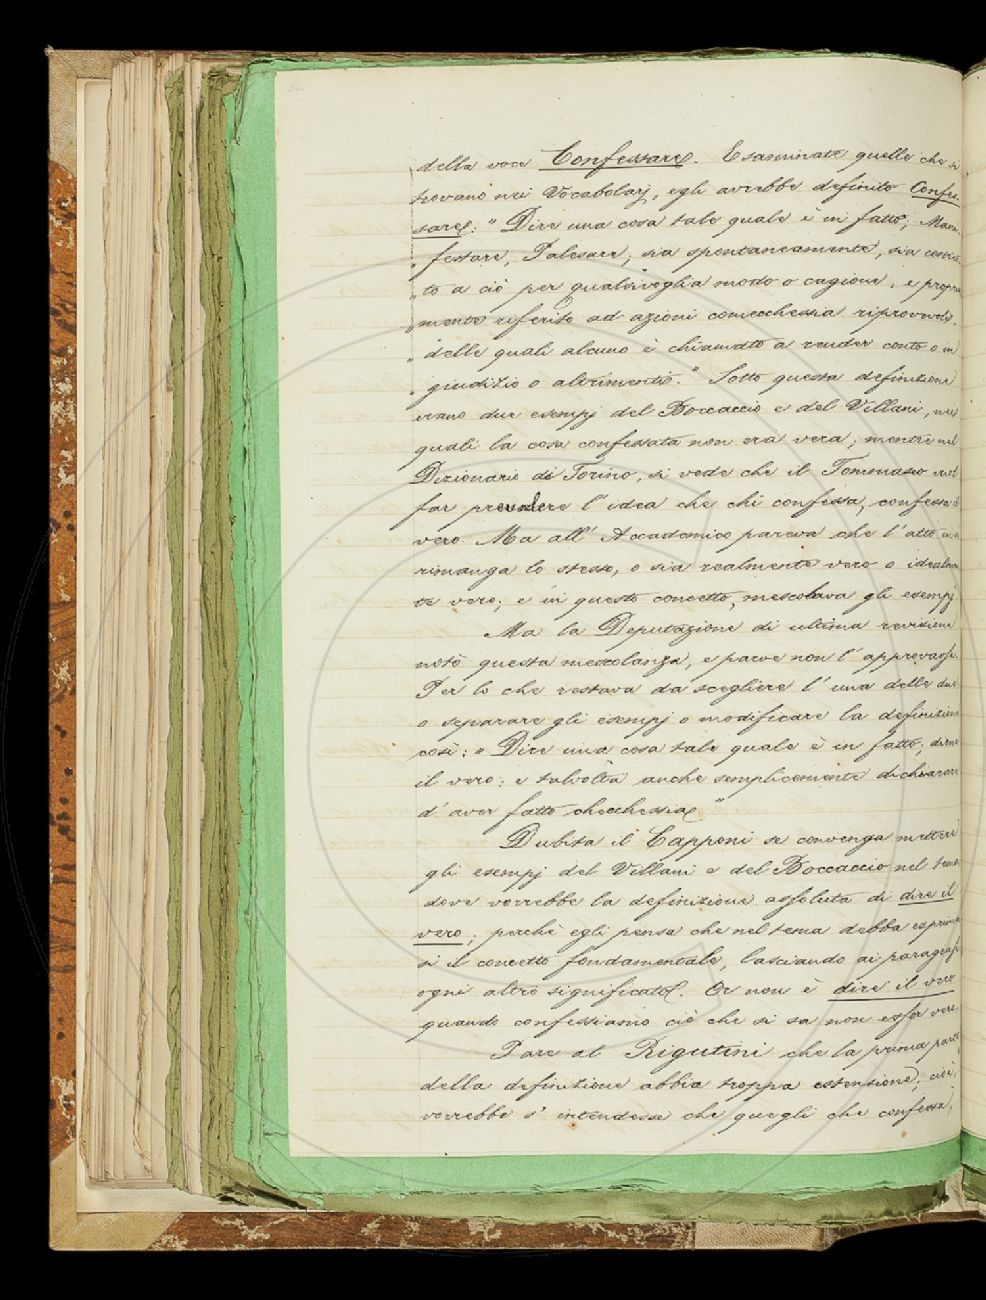 della voce Confessare. Esaminate quelle che si
trovano nei Vocabolarj, egli avrebbe definito Confes-
sare: " Dire una cosa tale quale è in fatto; Mani-
" festare, Palesare, sia spontaneamente, sia costret-
" to a ciò per qualsivoglia modo o cagione; e propria
" mente riferito ad azioni comecchessia riprovevoli,
" delle quali alcuno è chiamato a render conto o in
" giudizio o altrimenti." Sotto questa definizione
erano due esempj del Boccaccio e del Villani, nei
quali la cosa confessata non era vera; mentre nel
Dizionario di Torino, si vede che il Tommaseo vuol
far prendere l'idea che chi confessa, confessa il
vero. Ma all'Accademico pareva che l'atto
rimanga lo stesso, o sia realmente vero o idealmen
te vero; e in questo concetto, mescolava gli esempj.
Ma la Deputazione di ultima revisione
notò questa mescolanza, e parve non l'approvasse.
Per lo che restava da scegliere l'una delle due:
o separare gli esempj o modificare la definizione
così: " Dire una cosa tale quale è in fatto; dirne
il vero: e talvolta anche semplicemente dichiarare
d'aver fatto checchessia"
Dubita il Capponi se convenga mettere
gli esempj del Villani e del Boccaccio nel tema
dove vorrebbe la definizione assoluta di dire il
vero; perchè egli pensa che nel tema debba esprimer
si il concetto fondamentale, lasciando ai paragrafi
ogni altro significato. Or non è dire il vero
quando confessiamo ciò che si sa non esser vero.
Pare al Rigutini che la prima parte
della definizione abbia troppa estensione; cioè,
vorrebbe s'intendesse che quegli che confessa,